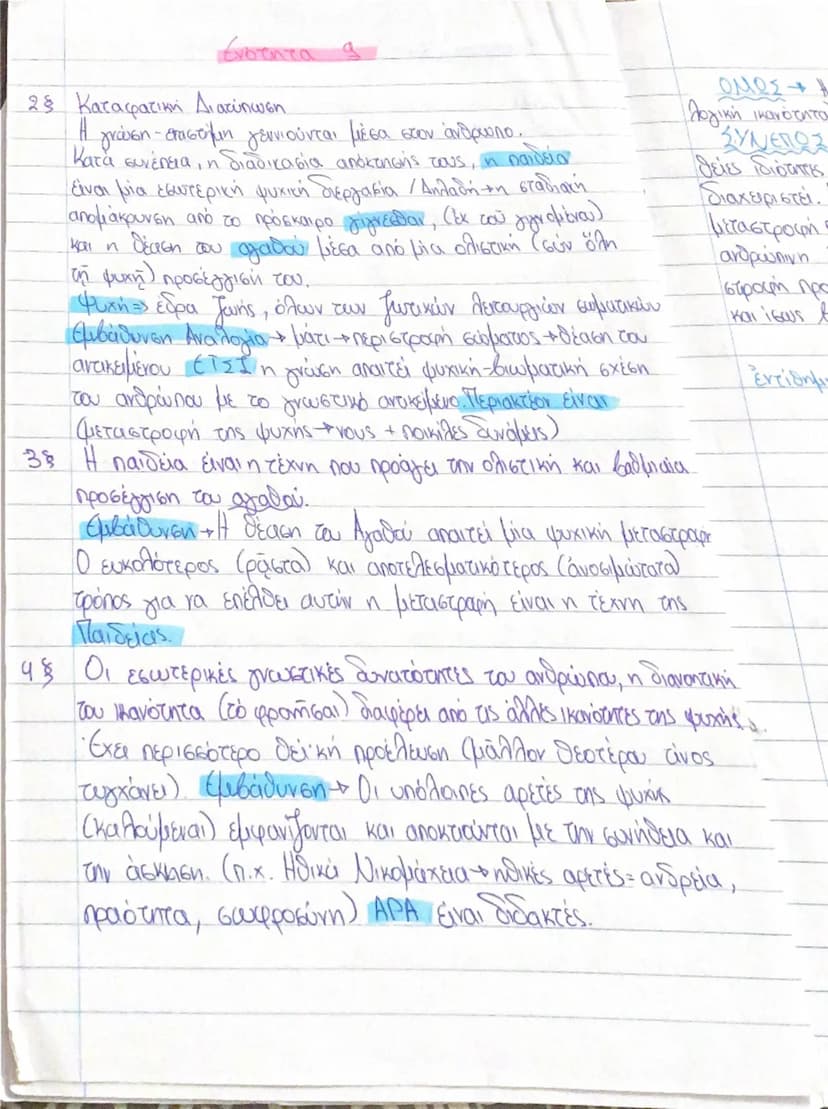 Ενότητα 9
2§ Καταφατική Διατύπωση
Η γνώση-επιστήμη γεννιούνται μέσα στον άνθρωπο.
Κατά συνέπεια, η διαδικασία απόκτησής τους, η παιδεία
είναι μία εσωτερική ψυχική διεργασία / Δηλαδή→η σταδιακή
απομάκρυνση από το πρόσκαιρο γίγνεσθαι, (ἐκ τοῦ γιγνομένου)
και η θέαση του αγαθού μέσα από μία ολιστική (σύν ὅλη
τῇ ψυχῇ) προσέγγισή του.
Ψυχή⇒ έδρα ζωής, όλων των ζωτικών λειτουργιών σωματικών
Εμβάθυνση Αναλογία→ μάτι→περιστροφή σώματος→θέαση του
αντικειμένου ΕΤΣΙ η γνώση απαιτεί ψυχική-βιωματική σχέση
του ανθρώπου με το γνωστικό αντικείμενο. Περιακτέον είναι
(μεταστροφή της ψυχής→νους + ποικίλες δυνάμεις)
3§ Η παιδεία είναι η τέχνη που προάγει την ολιστική και βαθμιαία
προσέγγιση του αγαθού.
Εμβάθυνση→Η θέαση του Αγαθού απαιτεί μία ψυχική μεταστροφ
Ο ευκολότερος (ρᾷστα) και αποτελεσματικότερος (ἀνυσιμώτατα)
τρόπος για να επέλθει αυτήν η μεταστροφή είναι η τέχνη της
Παιδείας.
4§ Οι εσωτερικές γνωστικές δυνατότητες του ανθρώπου, η διανοητική
του ικανότητα (τό φρονῆσαι) διαφέρει από τις άλλες ικανότητες της ψυχής.
Έχει περισσότερο θεϊκή προέλευση (μᾶλλον θειοτέρου τινος
τυγχάνει). Εμβάθυνση→ Οι υπόλοιπες αρετές της ψυχής
(καλούμεναι) εμφανίζονται και αποκτώνται με την συνήθεια και
την άσκηση. (π.χ. Ηθικά Νικομάχεια→ηθικές αρετές=ανδρεία,
πραότητα, σωφροσύνη) ΑΡΑ είναι διδακτές.
ΟΜΩΣ→ Η
λογική ικανότητα
ΣΥΝΕΠΩΣ
θείες ιδιότητες
διαχειριστεί.
μεταστροφή
ανθρώπινη
στροφή προ
και ίσως